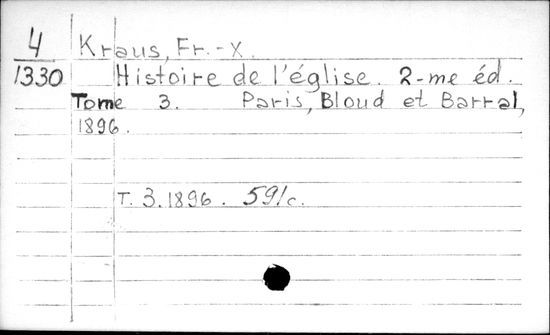 4 Kraus, Fr.-X.
1330 Histoire de l'église. 2-me éd.
Tome 3. Paris, Bloud et Barral,
1896.
T. 3. 1896. 591c.